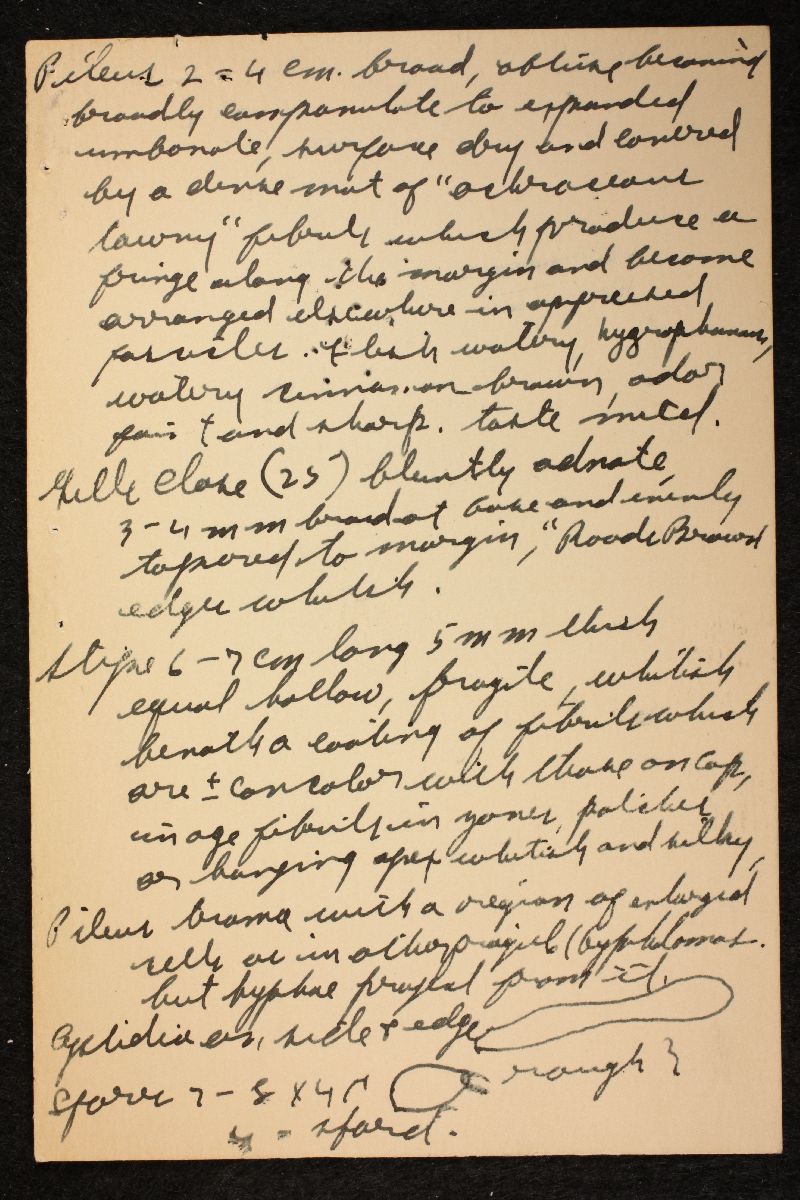 Pileus 2-4 cm. broad, obtuse becoming
broadly campanulate to expanded
umbonate, surface dry and covered
by a dense mat of "ochraceous
tawny" fibrils which produce a
fringe along the margin and become
arranged elsewhere in appressed
fascicles. Flesh watery, hygrophanous,
watery cinnamon brown, odor
faint and sharp. taste mild.
Gills close (25) bluntly adnate,
3-4 mm broad at base and evenly
tapered to margin, "Roods Brown
edges whitish.
Stipe 6-7 cm long 5 mm thick
equal hollow, fragile, whitish
beneath a coating of fibrils which
are ± concolor with those on cap,
in age fibrils in zones, patches
or hanging apex whitish and silky,
Pileus trama with a region of enlarged
cells as in
but hyphae project from it.
Cystidia on side & edge
Spores 7-8 x 4 rough
4-spored.